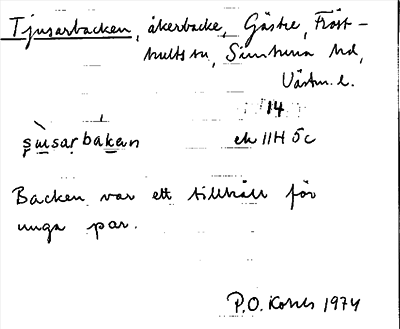 Tjusarbacken, åkerbacke, Gäshe, Fröst-
hults sn, Simtuna hd,
Västm. l.
14
s̩ùsar bákan ek 11H 5c
Backen var ett tillhåll för
unga par.
P.O. 1974